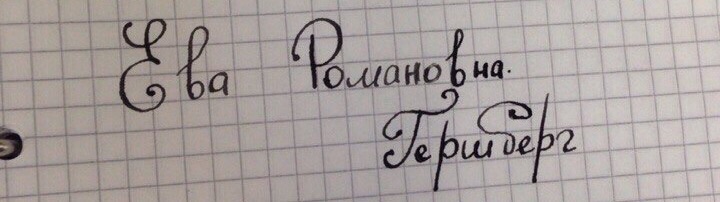 Ева Романовна.
Гершберг